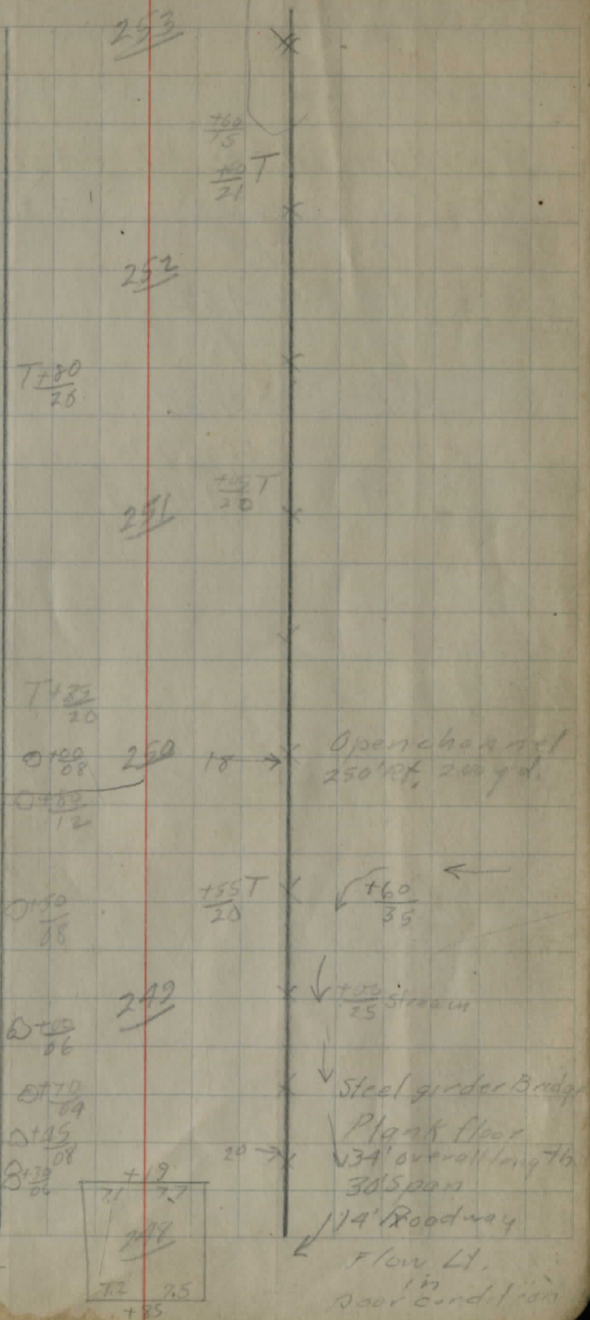 253
+60
15
+60 T
21
252
T+80
28
+05 T
20
251
T+85
20
+00
08
250
18
Open channel
250' Rt. 200 yd.
+60
12
+55 T
20
+60
35
+50
08
249
+00 Stream
25
+00
06
+70
09
Steel girder Bridge
Plank floor
+45
08
20
34' overall length
30' Span
+19
7.1 7.7
14' Roadway
248
Flow Lt.
in
7.2 7.5
poor condition
+85